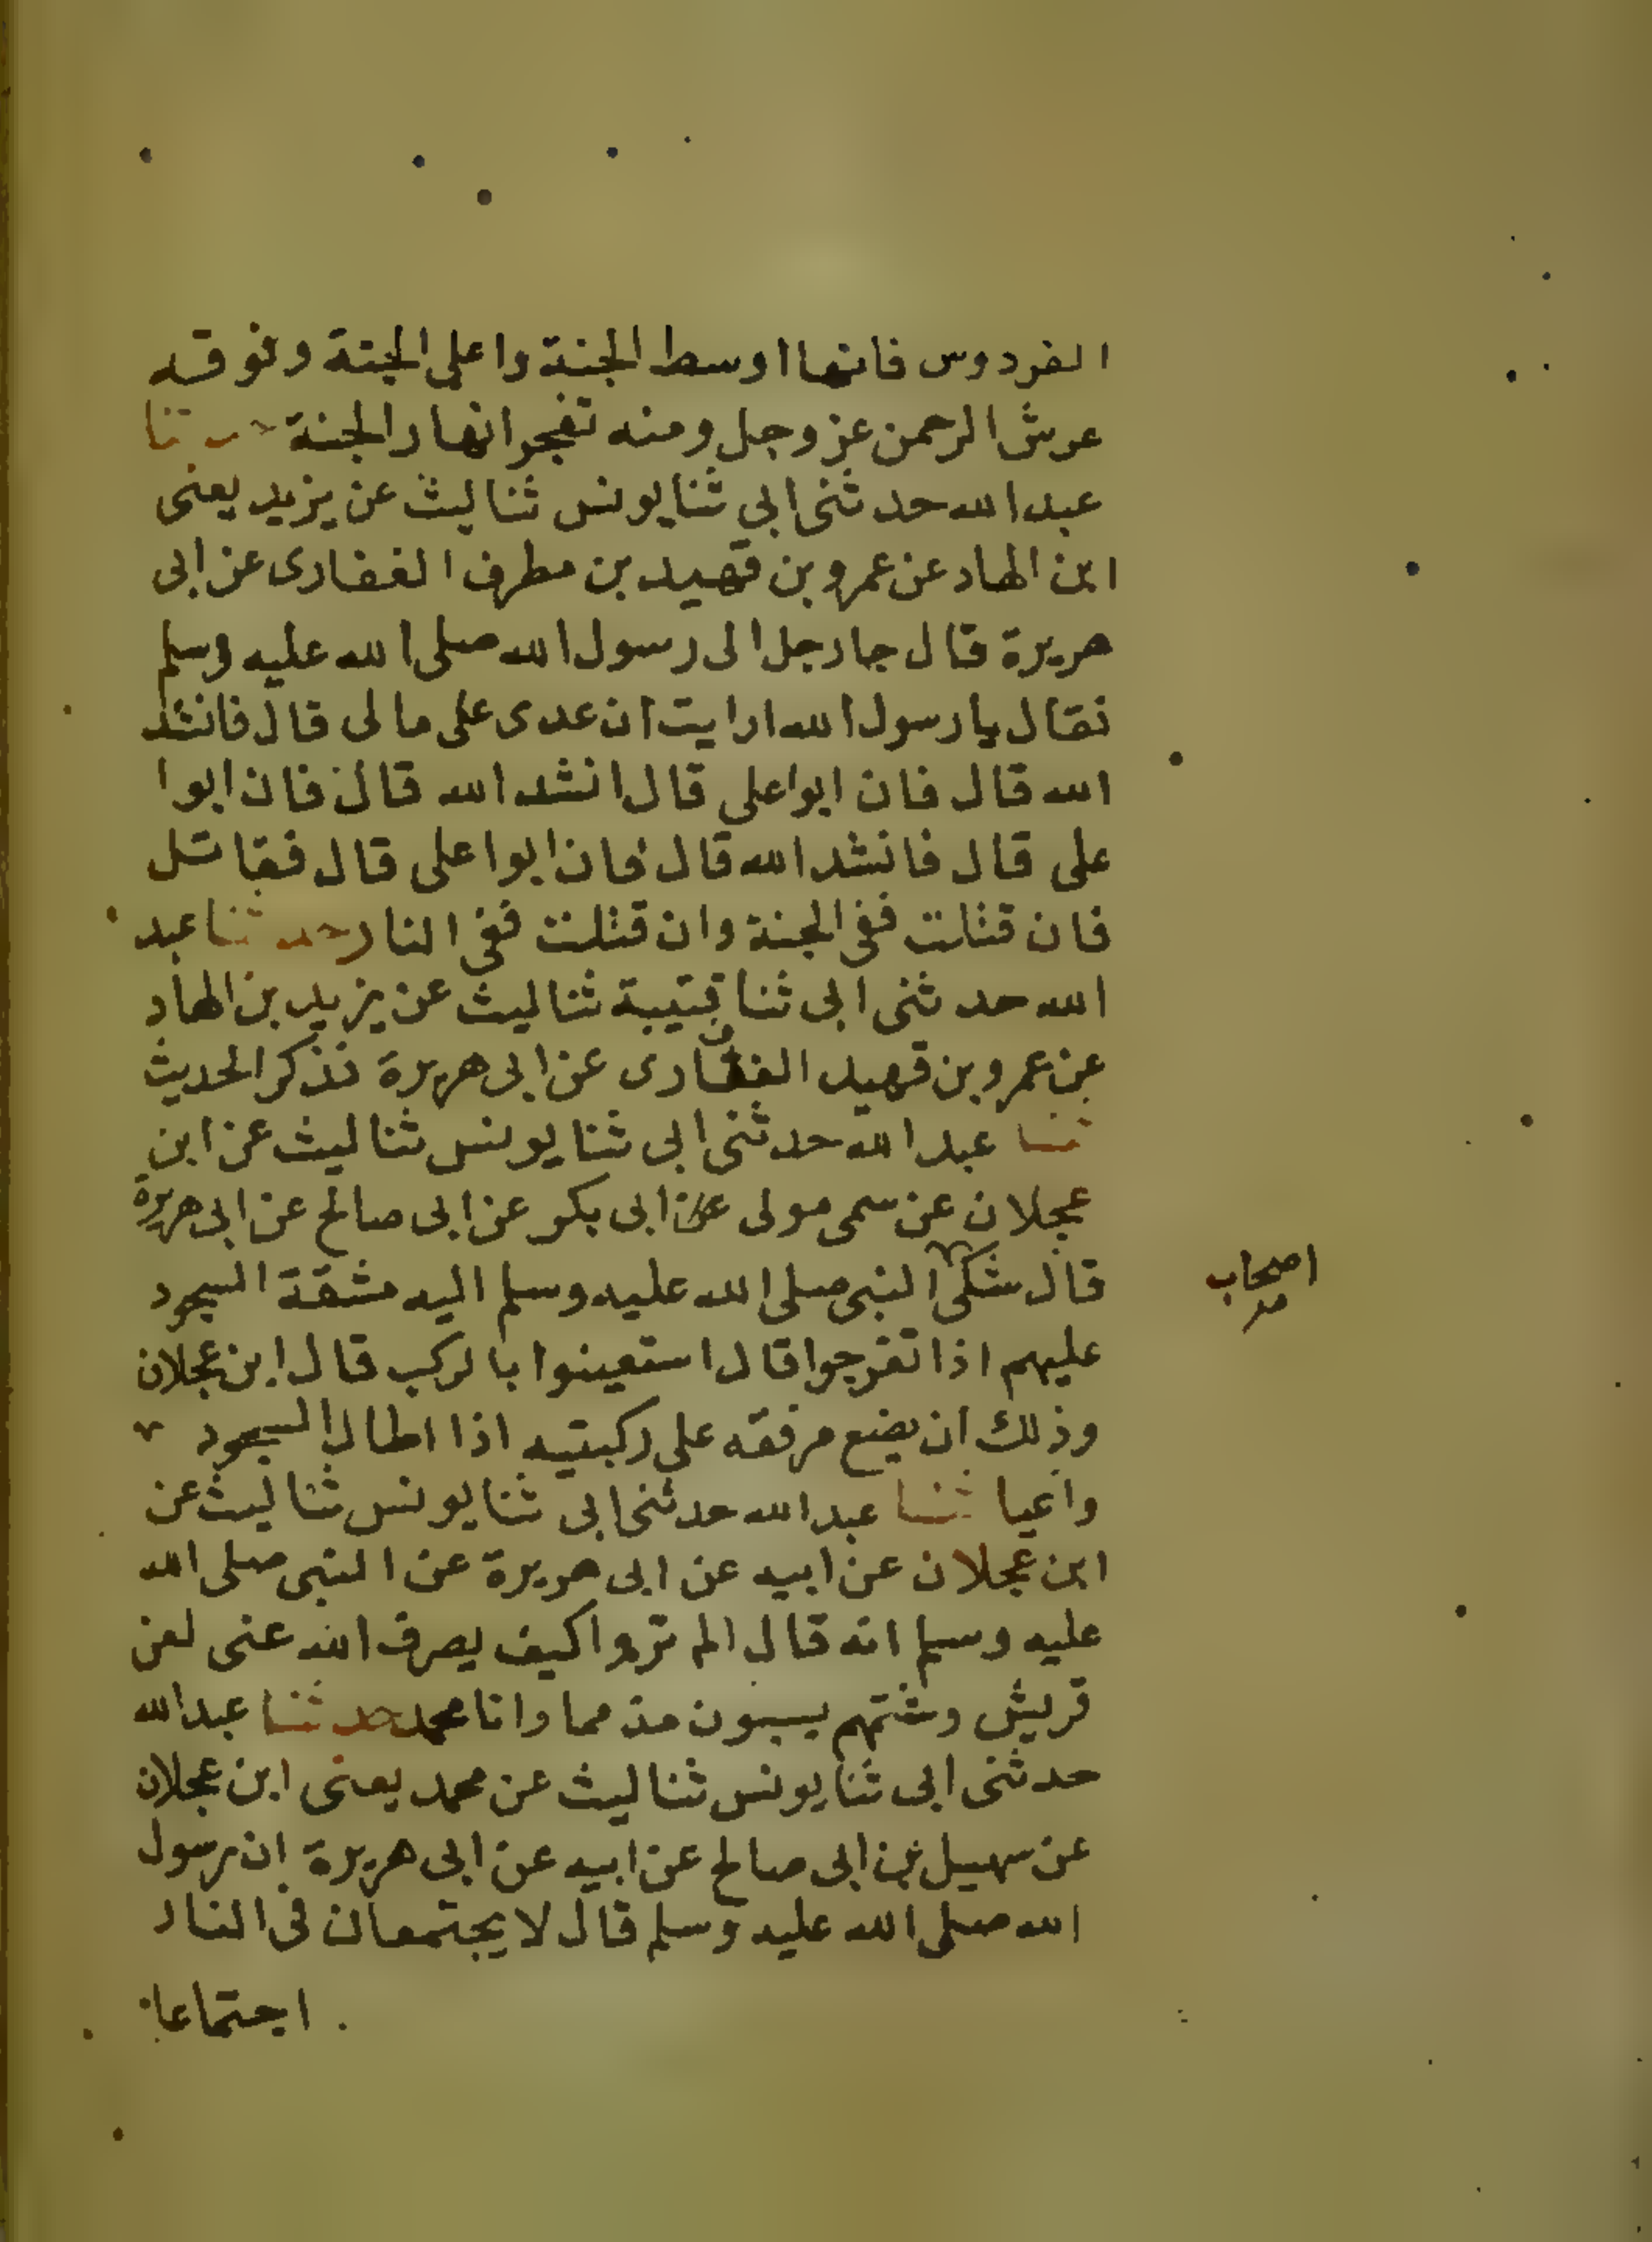 الفردوس فانها اوسط الجنة واعلى الجنة وفوقه
عرش الرحمن عز وجل ومنه تفجر انهار الجنة حدثنا
عبد الله حدثنى ابي ثنا يونس ثنا ليث عن يزيد يعنى
ابن الهاد عن عمرو بن قهيد بن مطرف الغفارى عن ابى
هريرة قال جا رجل الى رسول الله صلى الله عليه وسلم
فقال يا رسول الله ارايت ان عدى على مالى قال فانشد
الله قال فان ابوا على قال انشد الله قال فان ابوا
على قال فانشد الله قال فان ابوا على قال فقاتل
فان قتلت ففى الجنة وان قتلت ففى النار حدثنا عبد
الله حدثنى ابى ثنا قتيبة ثنا ليث عن يزيد بن الهاد
عن عمرو بن قهيد الغفارى عن ابى هريرة فذكر الحديث
ثنا عبد الله حدثنى ابى ثنا يونس ثنا ليث عن ابن
عجلان عن سمى مولى عن ابى بكر عن ابى صالح عن ابى هريرة
قال شكى النبى صلى الله عليه وسلم اليه مشقة السجود
اصحاب
عليهم اذا تفرجوا قال استعينوا بالركب قال ابن عجلان
وذلك ان يضع مرفقه على ركبتيه اذا اطال السجود
واعيا ثنا عبد الله حدثنى ابى ثنا يونس ثنا ليث عن
ابن عجلان عن ابيه عن ابى هريرة عن النبى صلى الله
عليه وسلم انه قال الم تروا كيف يصرف الله عنى لعن
قريش وشتمهم يسبون مذمما وانا محمد حدثنا عبد الله
حدثنى ابى ثنا يونس ثنا ليث عن محمد يعنى ابن عجلان
عن سهيل بن ابى صالح عن ابيه عن ابى هريرة ان رسول
الله صلى الله عليه وسلم قال لا يجتمعان فى النار
اجتماعا